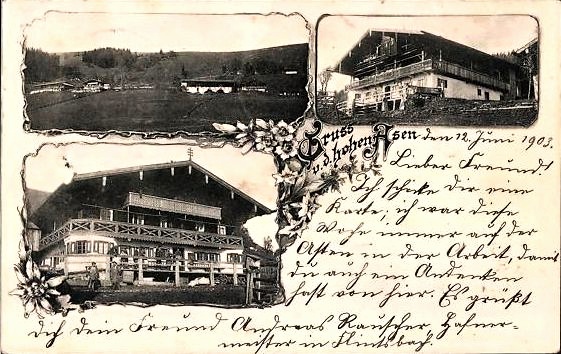 Gruss
v. d. hohen Asen
den 12. Juni 1903.
Lieber Freund!
Ich schicke Dir eine
Karte, ich war diese
Woche immer auf der
Asten in der Arbeit, damit
du auch ein Andenken
hast von hier. Es grüßt
dich dein Freund Andreas Rauscher, Hafner-
meister in Flintsbach.